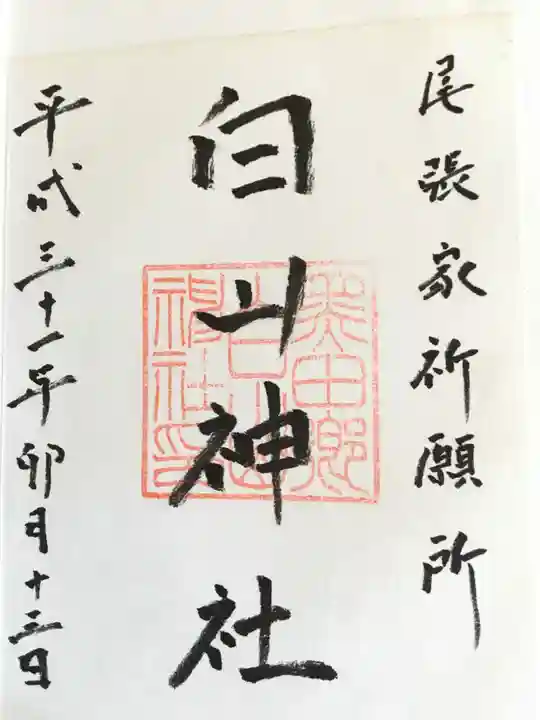 尾張家祈願所
白山神社
平成三十一年卯月十三日